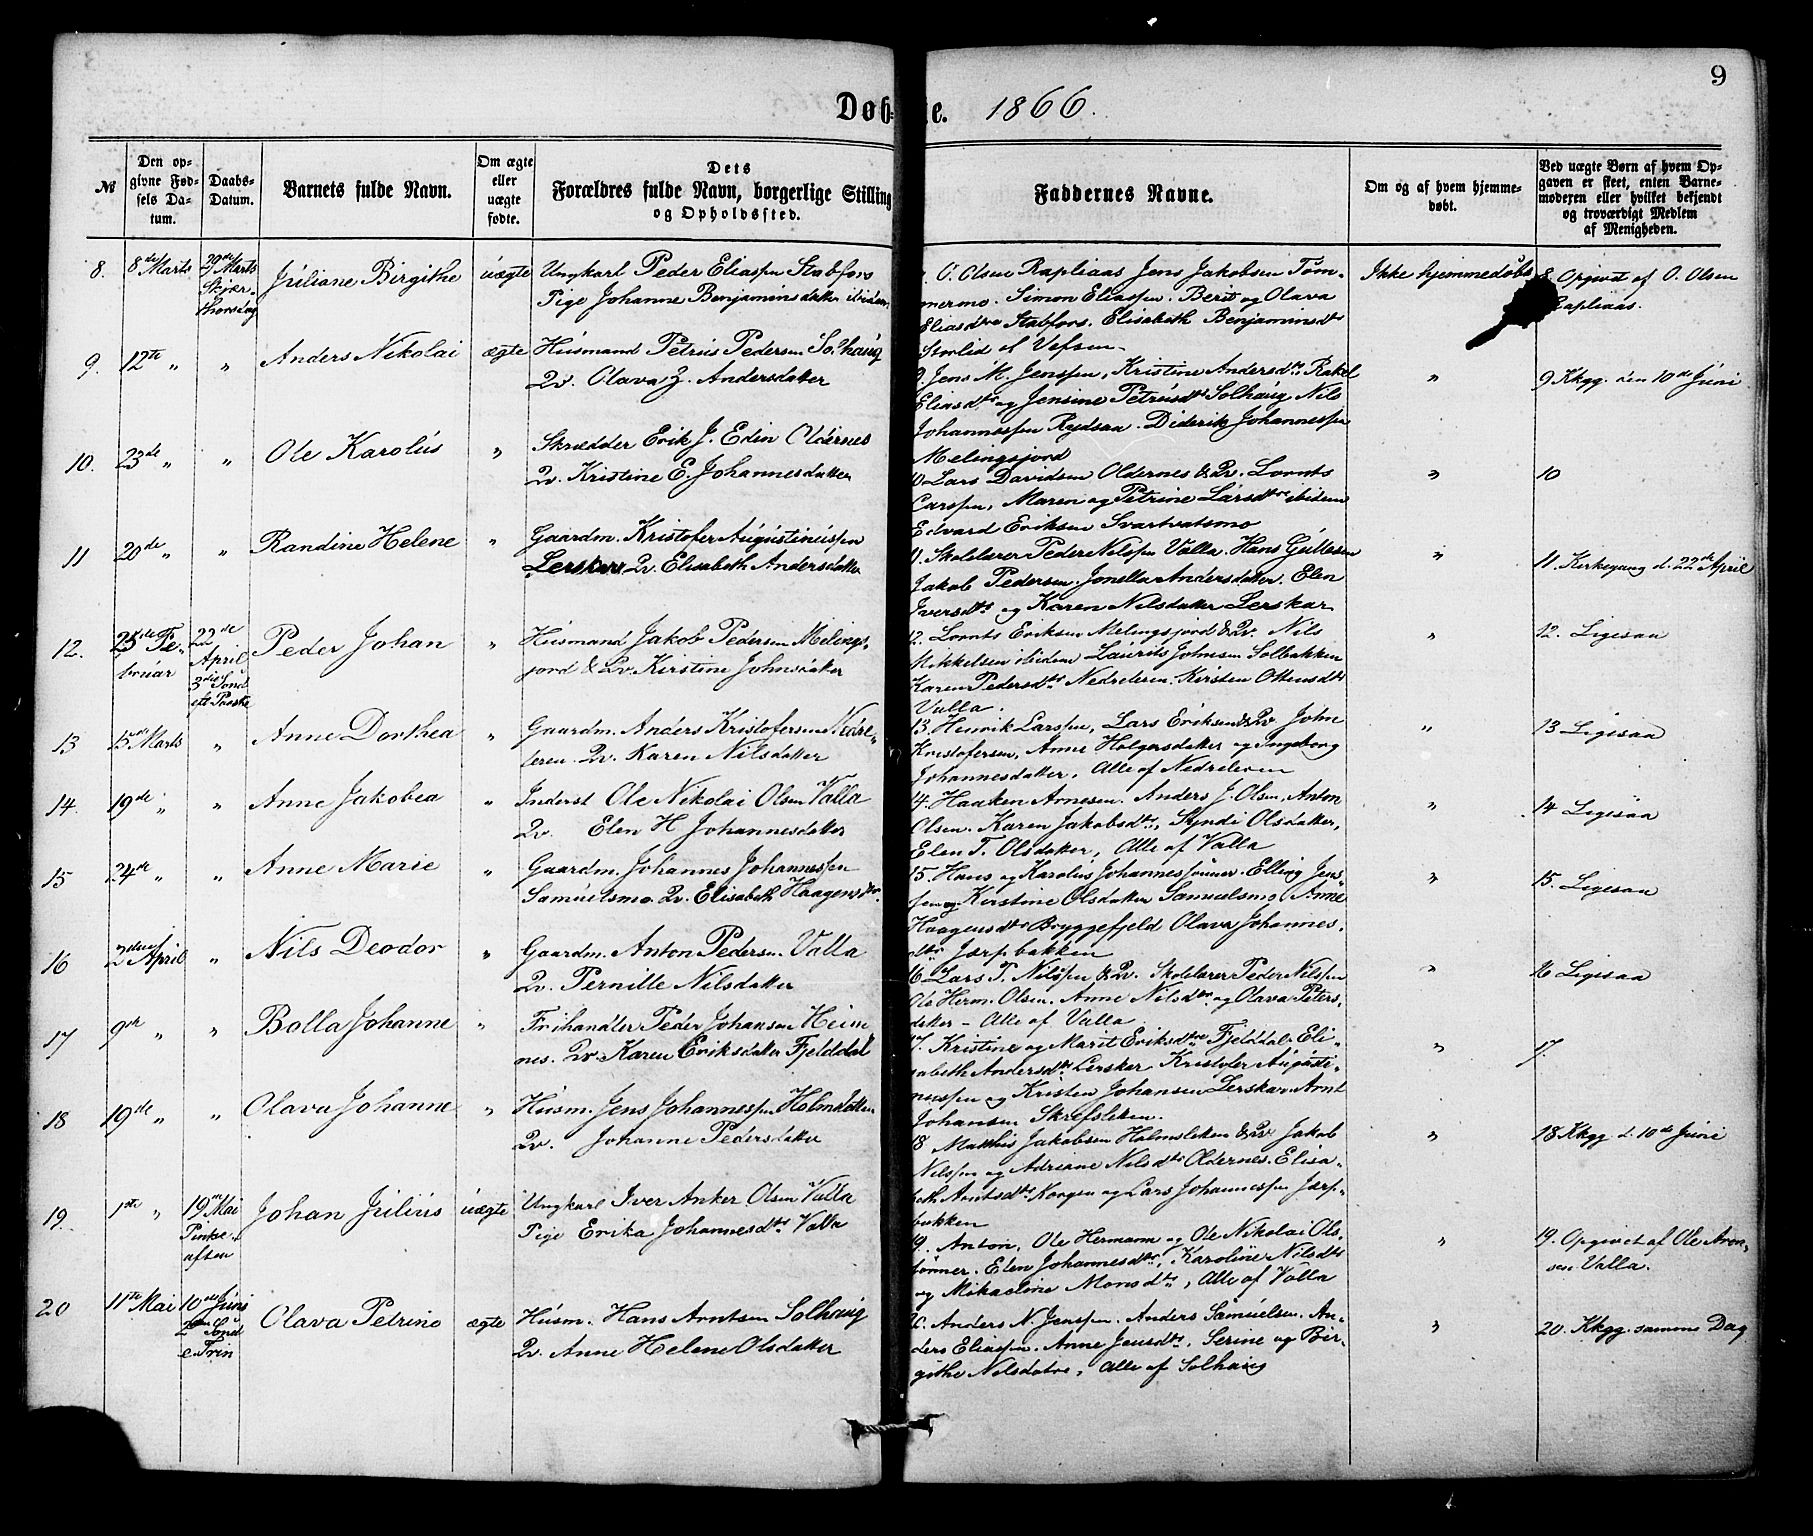 9
Døb- e. 1866.
№
Den opgivne Fødsels Datum.
Daabs-Datum.
Barnets fulde Navn.
Om ægte eller uægte fødte.
Dets Forældres fulde Navn, borgerlige Stilling og Opholdssted.
Faddernes Navne.
Om og af hvem hjemmedøbt.
Ved uægte Børn af hvem Opgaven er skeet, enten Barnemoderen eller hvilket bekjendt og troværdigt Medlem af Menigheden.
8. 8de Marts 29de Marts Skjærthorsdag Juliane Birgithe uægte Ungkarl Peder Eliassen Stabfors
Pige Johanne Benjaminsdatter ibidem
O. Olsen Rapliaas Jens Jakobsen Tom-
mermo. Simon Eliassen. Berit og Olava
Eliasdtre Stabfors. Elisabeth Benjaminsdtr
Storlid af Vefsen
Ikke hjemmedøbt
8. Opgivet af O. Olsen
Rapliaas.
9. 12te " " Anders Nikolai ægte Husmand Petrus Pedersen Solhaug
Qv. Olava Z. Andersdatter
9. Jens M. Jenssen, Kristine Andersdtr Rakel
Eliasdtr og Jensine Petrusdtr Solhaug Nils
Johannessen Rydsaa. Diderik Johannessen
Melingsjord
"
9 Kkgg. den 10de Juni
10. 23de " " Ole Karolus " Skrædder Erik J. Edin Oldernes
Qv. Kristine E. Johannesdatter
10 Lars Davidsen Oldernes & Qv. Lornts
Larssen, Maren og Petrine Larsdtre ibidem
Edvard Eriksen Svartvatsmo
"
10
11 20de " " Randine Helene " Gaardm. Kristofer Augustinussen
Lerskar Qv. Elisabeth Andersdatter
11. Skolelærer Peder Nilssen Valla. Hans Gullesen
Jakob Pedersen. Jonella Andersdatter. Elen
Iversdtr og Karen Nilsdatter Lerskar
"
11. Kirkegang d. 22de April
12. 25de Februar 22de April 3die Sond eft Paaske Peder Johan " Husmand Jakob Pedersen Melings-
jord & Qv. Kirstine Johnsdatter
12. Lornts Eriksen Melingsjord & Qv. Nils
Mikkelsen ibidem Laurits Johnsen Solbakken
Karen Pedersdtr Nedreleren. Kirsten Ottensdtr
Valla.
"
12. Ligesaa
13 15de Marts " Anne Dorthea " Gaardm. Anders Kristofersen Nedre-
leren. Qv. Karen Nilsdatter
13. Henrik Larssen, Lars Eriksen & Qv John
Kristofersen, Anne Holgersdatter og Ingeborg
Johannesdatter, Alle af Nedreleren
"
13 Ligesaa
14. 19de " " Anne Jakobea " Inderst Ole Nikolai Olsen Valla
Qv. Elen H Johannesdatter
14. Haaken Arnesen. Anders J. Olsen, Anton
Olsen. Karen Jakobsdtr, Syndi Olsdatter,
Elen T. Olsdatter, Alle af Valla
"
14 Ligesaa
15 24de " " Anne Marie " Gaardm. Johannes Johannessen
Samuelsmo. Qv. Elisabeth Haagensdtr.
15. Hans og Karolus Johannessønner. Elling Jens-
sen og Kirstine Olsdatter Samuelsmo Anne
Haagensdtr Bryggefjeld Olava Johannes-
dtr Jarpbakken
"
15. Ligesaa
16 2den April " Nils Deodor " Gaardm. Anton Pedersen Valla
Qv. Pernille Nilsdatter
16 Lars T. Nilssen & Qv. Skolelærer Peder Nilssen
Ole Herm. Olsen. Anne Nilsdtr og Olava Peters-
datter - Alle af Valla
"
16 Ligesaa
17 9de " " Bolla Johanne " Frihandler Peder Johansen Hem-
nes. Qv. Karen Eriksdatter Fjelddal
17. Kristine og Marit Eriksdtre Fjelddal. Eli-
sabeth Andersdtr Lerskar Kristofer Augusti-
nussen og Kristen Johansen Lerskar. Arnt
Johansen Skrefsleken.
"
17.
18 19de " " Olava Johanne " Husm. Jens Johannessen Holmsleken
Qv. Johanne Pedersdatter
18 Matthis Jakobsen Holmsleken & Qv Jakob
Nilssen og Adriane Nilsdtr Oldernes. Elisa-
beth Arntsdtr Korgen og Lars Johannessen Jarp-
bakken
"
18 Kkgg d. 10de Juni
19. 1ste " 19de Mai Pintseaften Johan Julius uægte Ungkarl Iver Anker Olsen Valla
Pige Erika Johannesdtr Valla
19. Anton, Ole Hermann og Ole Nikolai Ols-
sønner. Elen Johannesdtr, Karoline Nilsdtr
og Mikaeline Monsdtr, Alle af Valla
"
19. Opgivet af Ole Aron-
sen Valla.
20 11te Mai 10de Juni 2den Sond e. Trin Olava Petrine ægte Husm. Hans Arntsen Solhaug
Qv. Anne Helene Olsdatter
20. Anders N. Jenssen. Anders Samuelsen. An-
ders Eliassen. Anne Jensdtr, Serine og Bir-
githe Nilsdatre, Alle af Solhaug
"
20. Kkgg. samme Dag